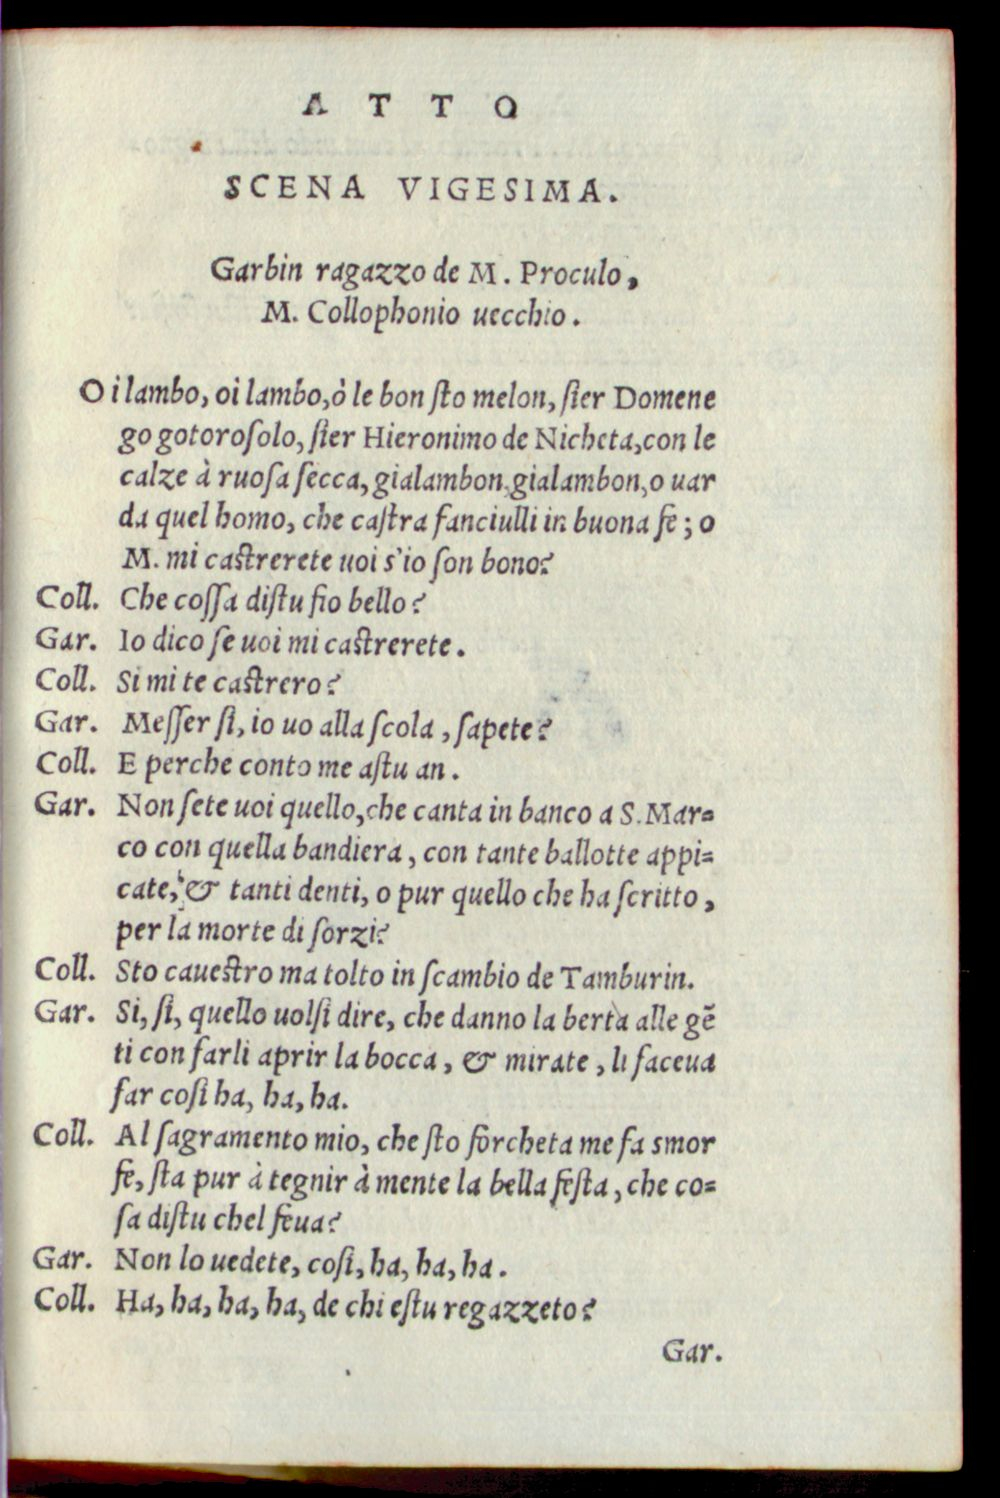 ATTO
SCENA VIGESIMA.
Garbin ragazzo de M. Proculo,
M. Collophonio uecchio.
Oi lambo, oi lambo, ò le bon ſto melon, ſier Domene
go gotoroſolo, ſier Hieronimo de Nicheta, con le
calze à ruoſa ſecca, gialambon, gialambon, o uar
da quel homo, che caſtra fanciulli in buona fe; o
M. mi caſtrerete uoi s'io ſon bono?
Coll. Che coſſa diſtu fio bello?
Gar. Io dico ſe uoi mi caſtrerete.
Coll. Si mi te caſtrero?
Gar. Meſſer ſi, io uo alla ſcola, ſapete?
Coll. E perche conto me aſtu an.
Gar. Non ſete uoi quello, che canta in banco a S. Mar=
co con quella bandiera, con tante ballotte appi=
cate, & tanti denti, o pur quello che ha ſcritto,
per la morte di ſorzi?
Coll. Sto caueſtro ma tolto in ſcambio de Tamburin.
Gar. Si, ſi, quello uolſi dire, che danno la berta alle gē
ti con farli aprir la bocca, & mirate, li faceua
far coſi ha, ha, ha.
Coll. Al ſagramento mio, che ſto forcheta me fa smor
fie, ſta pur à tegnir à mente la bella feſta, che co=
ſa diſtu chel feua?
Gar. Non lo uedete, coſi, ha, ha, ha.
Coll. Ha, ha, ha, ha, de chi eſtu regazzeto?
Gar.